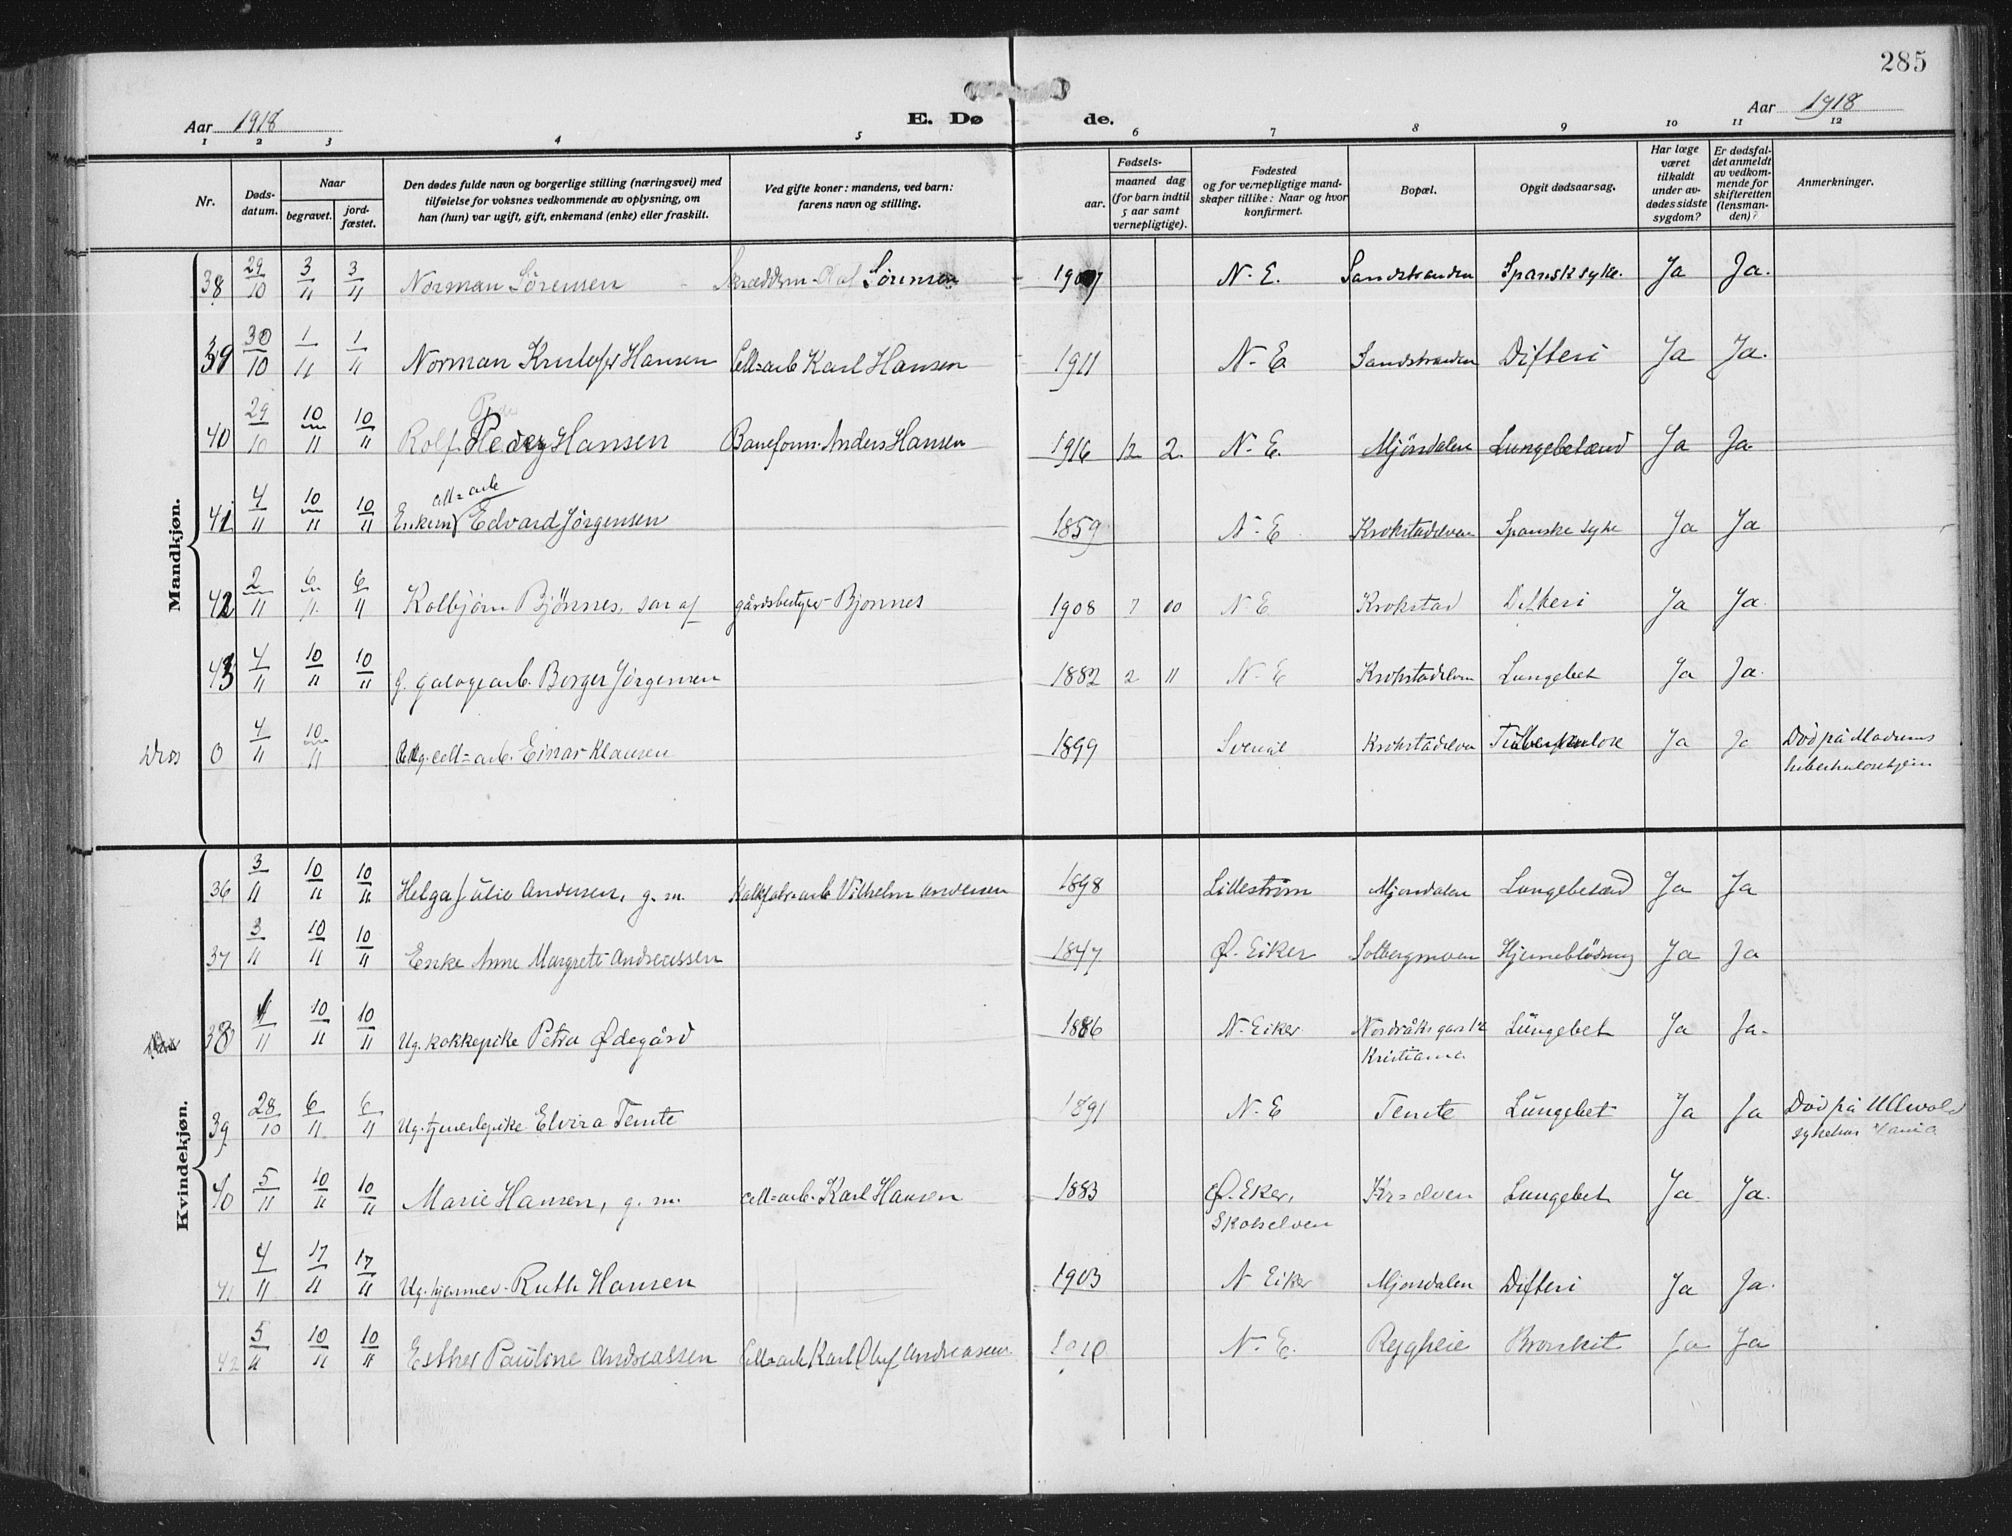 285
Aar 1918
E. Døde.
Aar 1918
1 2 3 4 5 6 7 8 9 10 11 12
Nr.
Døds-datum.
Naar
begravet.
jord-fæstet.
Den dødes fulde navn og borgerlige stilling (næringsvei) med tilføielse for voksnes vedkommende av oplysning, om han (hun) var ugift, gift, enkemand (enke) eller fraskilt.
Ved gifte koner: mandens, ved barn: farens navn og stilling.
Fødsels-
aar.
maaned dag (for barn indtil 5 aar samt vernepligtige).
Fødested og for vernepligtige mandskaper tillike: Naar og hvor konfirmert.
Bopæl.
Opgit dødsaarsag.
Har læge været tilkaldt under avdødes sidste sygdom?
Er dødsfaldet anmeldt av vedkommende for skifteretten (lensmanden)?
Anmerkninger.
Mandkjøn.
38 29/10 3/11 3/11 Norman Sørensen Sørensen N.E. Sandstranden Spansk syke. Ja Ja.
39 30/10 1/11 1/11 Norman Kristofer Hansen Cell=arb Karl Hansen 1911 N.E Sandstranden Difteri Ja Ja.
40 29/10 10/11 10/11 Rolf Hansen Baneform. Anders Hansen 1916 12 2 N.E. Mjöndalen Lungebetænd Ja Ja.
41 4/11 10/11 10/11 Enkem cell=arb Edvard Jørgensen 1859 N.E Krokstadelven Spanske syke Ja Ja
42 2/11 6/11 6/11 Kolbjørn Bjönnes, søn af gårdsbestyr Bjønnes 1908 7 N.E Krokstad Difteri Ja Ja.
43 4/11 10/11 10/11 G. galogearb. Borger Jørgensen 1882 2 11 N.E Krokstadelven Lungebet Ja Ja.
0 4/11 10/11 Ug. cell=arb. Einar Klausen 1899 Svensk Krokstadelven Tuberkulose Ja Ja Död på Modums tuberkulosehjem
Kvindekjøn.
36 3/11 10/11 10/11 Helga Julie Andersen, g.m. Vilhelm Andersen 1898 Lilleström Mjøndalen Lungebetænd Ja Ja
37 3/11 10/11 10/11 Enke Anne Margrete Andreassen 1847 Ø. Eiker Solbergmoen Hjerneblödning Ja Ja
38 10/11 10/11 Ug. kokkepike Petra Ødegård 1886 N. Eiker Nordråks gars 12 Kristiania Lüngebet Ja Ja.
39 28/10 6/11 6/11 Ug. tjenestepike Elvira Temte 1891 N.E Temte Lüngebet Ja Ja Död på Ullevold sykehus
40 5/11 10/11 10/11 Marie Hansen, g.m. cell=arb. Karl Hansen 1883 Ø. Eker, Skotselven Kr.elven Lungebet Ja Ja.
41 4/11 17/11 17/11 Ug. hjemmev. Ruth Hansen 1903 N Eiker Mjøndalen Difteri Ja Ja.
42 5/11 10/11 10/11 Esther Pauline Andreassen Cell=arb Karl Oluf Andreassen 1910 N.E. Rygheie Bronkit Ja Ja